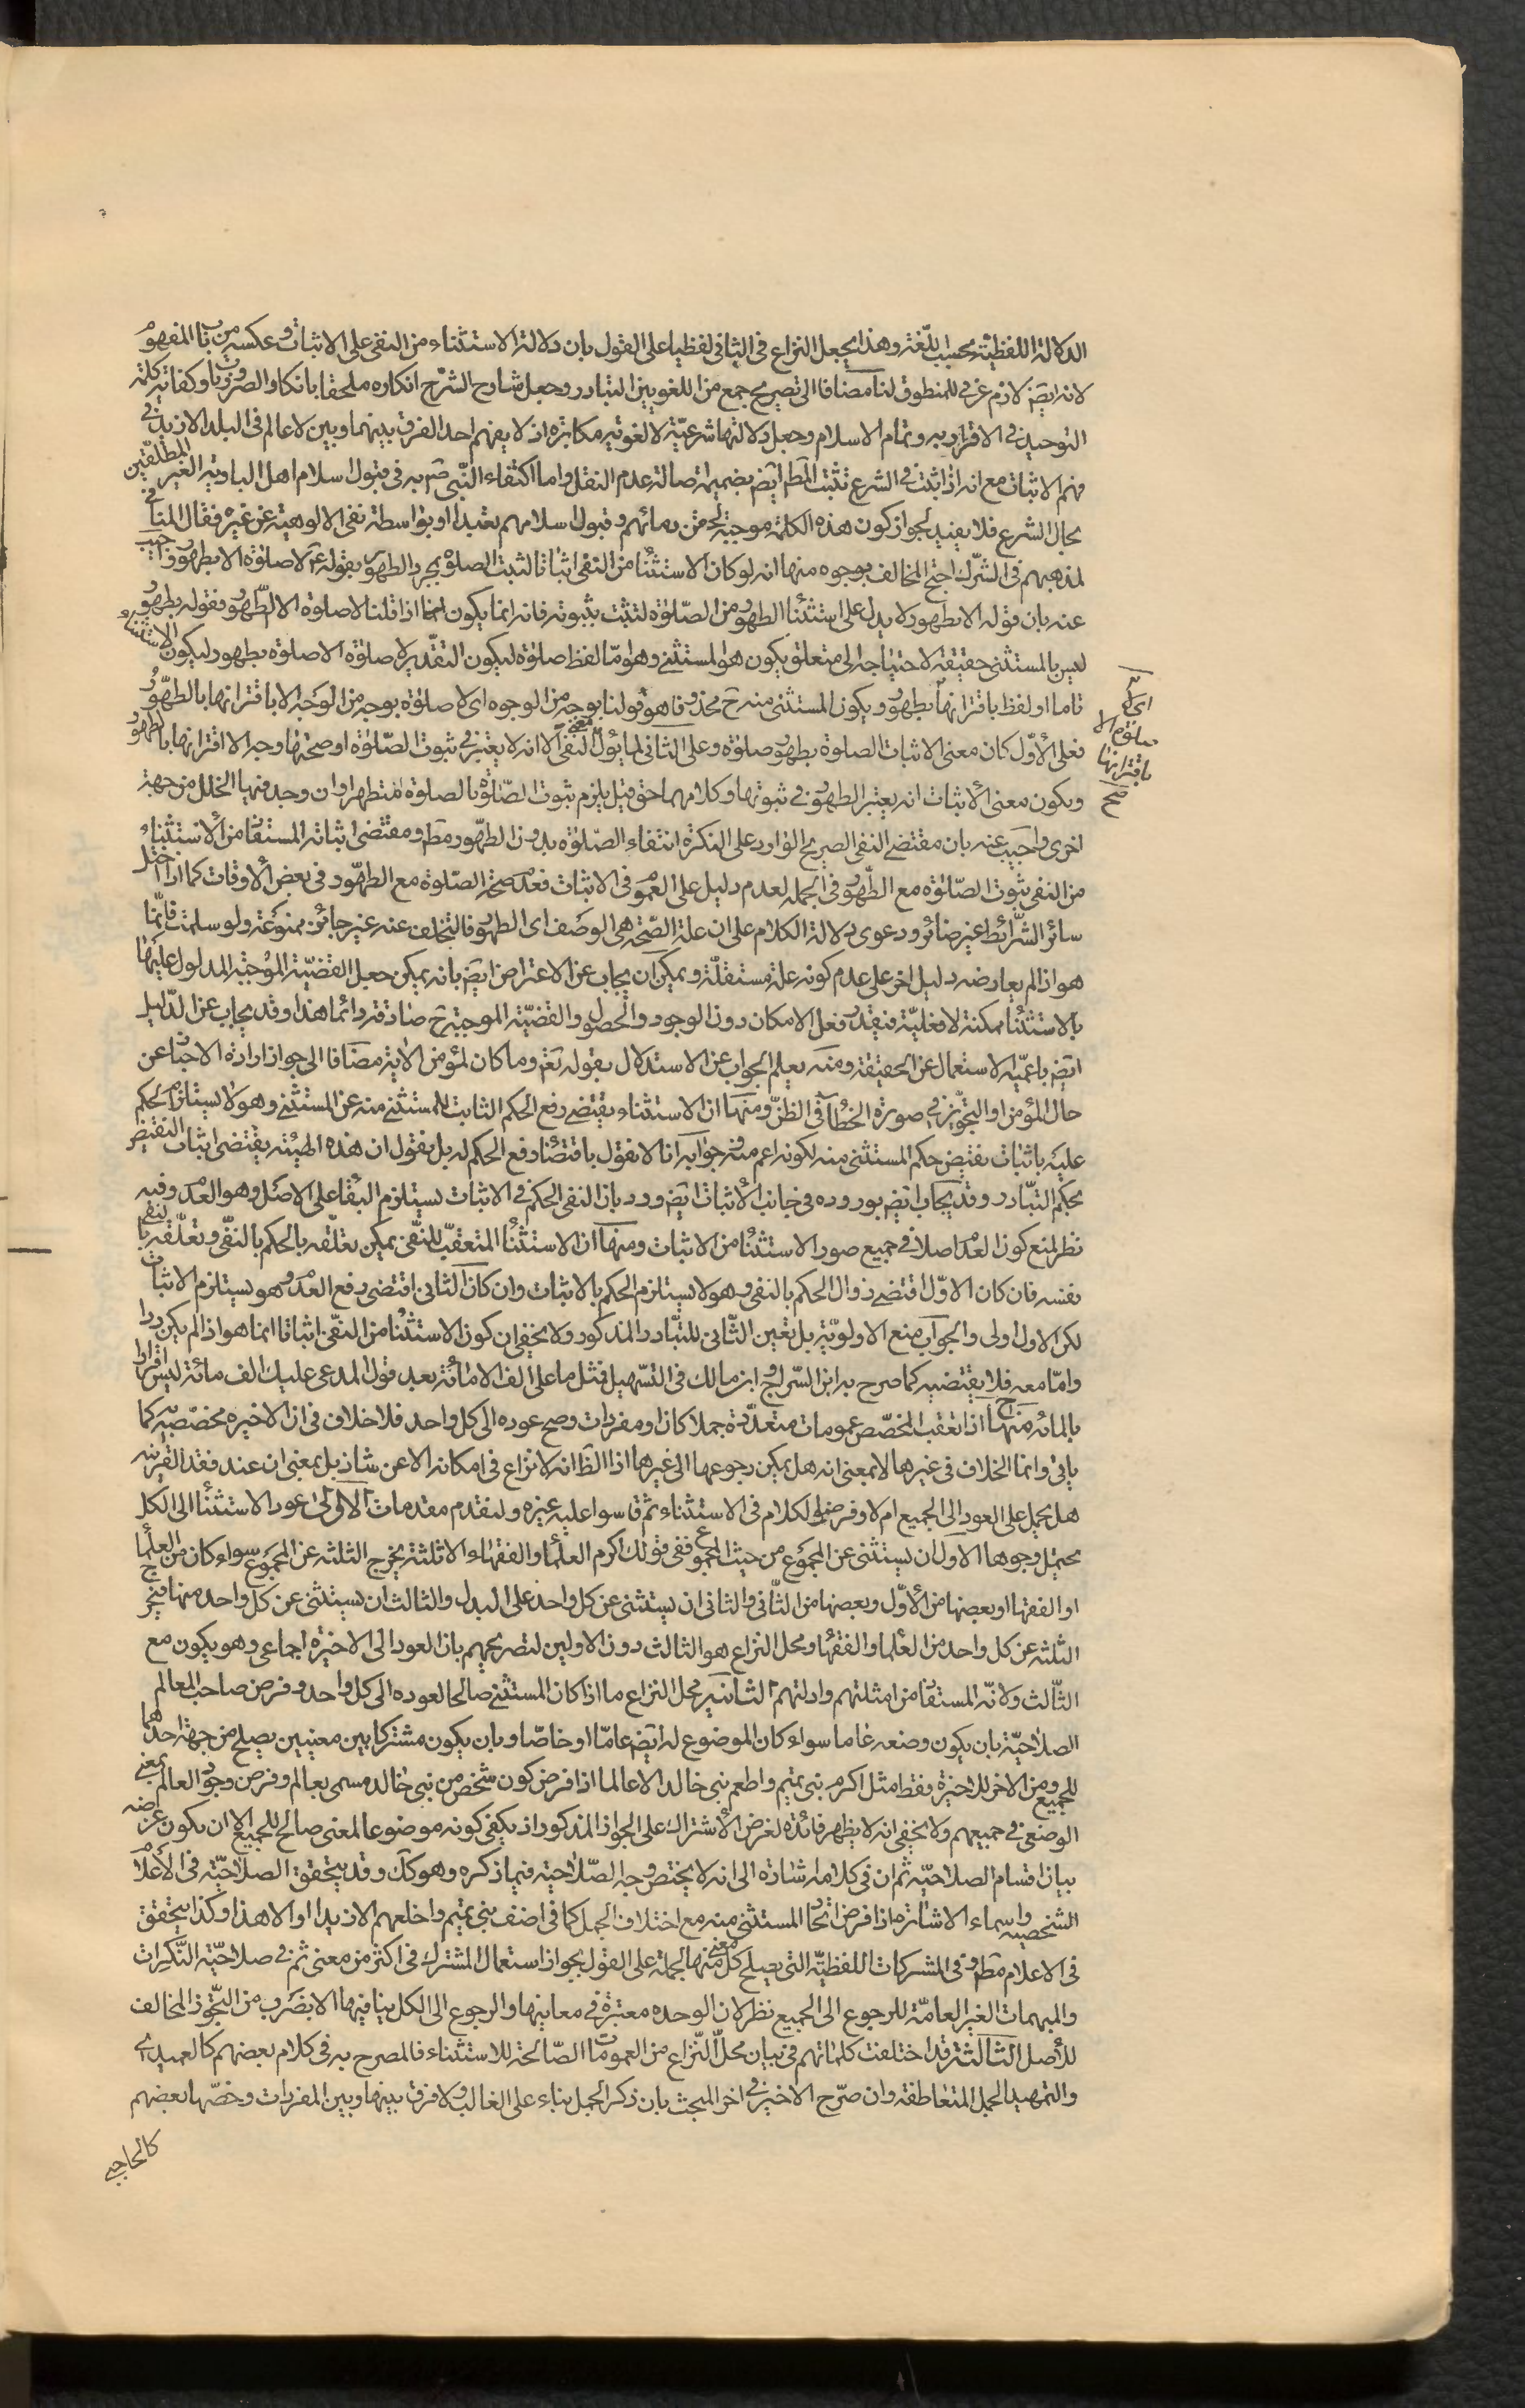 الدلالة اللفظية بحسب اللغة وهذا يجعل النزاع فى الثانى لفظيا على القول بان دلالة الاستثناء من النفى على الاثبات وعكسه من باب المفهوم
لانه ايض لازم غرفى للمنطوق لنا مضافا الى تصريح جمع من اللغويين التبادر وجعل شارح الشرح انكاره ملحقا بانكار الضروريات وكفاية كلمة
التوحيد فى الاقرار به وتمام الاسلام وجعل دلالتها شرعية لا لغوية مكابرة اذ لا يفهم احد الفرق بينهما وبين لا عالم فى البلد الا زيد فى
فهم الاثبات مع انه اذا ثبت فى الشرع تثبت المط ايض بضميمة اصالة عدم النقل واما اكتفاء النبى ص به فى قبول اسلام اهل البادية الغير المطلقين
بحال الشرع فلا يفيد لجواز كون هذه الكلمة موجبة لحقن دمائهم وقبول اسلامهم تعبدا او بواسطة نفى الالوهية عن غيره فقال المنافى
لمذهبهم فى الشرك احتج المخالف بوجوه منها انه لو كان الاستثناء من النفى اثباتا لثبت الصلوة بمجرد الطهور بقوله ع لا صلوة الا بطهور واجيب
عنه بان قوله الا بطهور لا يدل على استثناء الطهور من الصلوة لتثبت بثبوته فانه انما يكون لنا اذا قلنا لا صلوة الا الطهور فقوله بطهور
ليس بالمستثنى حقيقة لاحتياجه الى متعلق يكون هو المستثنى وهو اما لفظ صلوة ليكون التقدير لا صلوة الا صلوة بطهور ليكون الاستثناء
تاما او لفظ باقترانها بطهور ويكون المستثنى منه ح محذوفا هو قولنا بوجه من الوجوه اى لا صلوة بوجه من الوجه الا باقترانها بالطهور
فعلى الاول كان معنى الاثبات الصلوة بطهور صلوة وعلى الثانى لما يؤل معنى النفى الا انه لا يعتبر فى ثبوت الصلوة او صحتها وجه الا اقترانها بالطهور
ويكون معنى الاثبات انه يعتبر الطهور فى ثبوتها وكلامهما حق قيل يلزم ثبوت الصلوة بالصلوة متطهرا وان وجد فيها الخلل من جهة
اخرى واجيب عنه بان مقتضى النفى الصريح الوارد على النكرة انتفاء الصلوة بدون الطهور مط ومقتضى اثباته المستفاد من الاستثناء
من النفى ثبوت الصلوة مع الطهور فى الجملة لعدم دليل على العموم فى الاثبات فعدم صحة الصلوة مع الطهور فى بعض الاوقات كما اذا اختل
سائر الشرائط غير ضائر ودعوى دلالة الكلام على ان علة الصحة هى الوصف اى الطهور فالتخلف عنه غير جائز ممنوعة ولو سلمت فانما
هو اذا لم يعارضه دليل اخر على عدم كونه علة مستقلة ويمكن ان يجاب عن الاعتراض ايض بانه يمكن جعل القضية الموجبة المدلول عليها
بالاستثناء ممكنة لا فعلية فيقدر فعل الامكان دون الوجود والحصول والقضية الموجبة ح صادقة دائما هذا وقد يجاب عن الدليل
ايض باعمية الاستعمال عن الحقيقة ومنه يعلم الجواب عن الاستدلال بقوله تع وما كان لمؤمن الاية مضافا الى جواز ارادة الاخبار عن
حال المؤمن او التجويز فى صورة الخطأ فى الظن ومنها ان الاستثناء يقتضى رفع الحكم الثابت للمستثنى منه عن المستثنى وهو لا يستلزم الحكم
عليه باثبات نقيض حكم المستثنى منه لكونه اعم منه وجوابه انا لا نقول باقتضاء رفع الحكم له بل نقول ان هذه الهيئة يقتضى اثبات النقيض
بحكم التبادر وقد يجاب ايض بوروده فى جانب الاثبات ايض ورد بان النفى الحكم فى الاثبات يستلزم البقاء على الاصل وهو العدم وفيه
نظر لمنع كون العدم اصلا فى جميع صور الاستثناء من الاثبات ومنها ان الاستثناء المتعقب للنفى يمكن تعلقه بالحكم بالنفى وتعلقه بالنفى
نفسه فان كان الاول اقتضى زوال الحكم بالنفى وهو لا يستلزم الحكم بالاثبات وان كان الثانى اقتضى رفع العدم وهو يستلزم الاثبات
لكن الاول اولى والجواب منع الاولوية بل تعين الثانى للتبادر المذكور ولا يخفى ان كون الاستثناء من النفى اثباتا انما هو اذا لم يكن ردا
واما معه فلا يقتضيه كما صرح به ابن السراج وابن مالك فى التسهيل فمثل ما على الف الا مائة بعد قول المدعى عليك الف مائة ليس اقرارا
بالمائة منهاج اذا تعقب المخصص عمومات متعددة جملا كان او مفردات وصح عوده الى كل واحد فلا خلاف فى ان الاخيرة مخصصة كما
ياتى وانما الخلاف فى غيرها لا بمعنى انه هل يمكن رجوعها الى غيرها اذا الظ انه لا نزاع فى امكانه الا عن شاذ بل بمعنى ان عند فقد القرينة
هل يحمل على العود الى الجميع ام لا وفرضوا الكلام فى الاستثناء ثم قاسوا عليه غيره ولنقدم مقدمات الاولى عود الاستثناء الى الكل
يحتمل وجوها الاول ان يستثنى عن المجموع من حيث المجموع ففى قولك اكرم العلماء والفقهاء الا ثلثة يخرج الثلثة عن المجموع سواء كان من العلماء
او الفقهاء او بعضها من الاول وبعضها من الثانى والثانى ان يستثنى عن كل واحد على البدل والثالث ان يستثنى عن كل واحد منها فيخرج
الثلثة عن كل واحد من العلماء والفقهاء ومحل النزاع هو الثالث دون الاولين لتصريحهم بان العود الى الاخيرة اجماعى وهو يكون مع
الثالث ولانه المستفاد من امثلتهم وادلتهم الثانية محل النزاع ما اذا كان المستثنى صالحا لعوده الى كل واحد وفرض صاحب المعالم
الصلاحية بان يكون وضعه عاما سواء كان الموضوع له ايض عاما او خاصا وبان يكون مشتركا بين معنيين يصلح من جهة احدهما
للجميع ومن الاخر للاخيرة فقط مثل اكرم بنى تميم واطعم بنى خالد الا عالما اذا فرض كون شخص من بنى خالد مسمى بعالم وفرض وجود العالم بمعنى
الوضعى فى جميعهم ولا يخفى انه لا يظهر فائدة لغرض الاشتراك على الجواز المذكور اذ يكفى كونه موضوعا لمعنى صالح للجميع الا ان يكون غرضه
بيان اقسام الصلاحية ثم ان فى كلامه اشارة الى انه لا يختص وجه الصلاحية فيما ذكره وهو كك وقد يتحقق الصلاحية فى الاعلام
الشخصية واسماء الاشارة اذا فرض اتحاد المستثنى منه مع اختلاف الجمل كما فى اضف بنى تميم واخلعهم الا زيدا او الا هذا وكذا يتحقق
فى الاعلام مط وفى المشتركات اللفظية التى يصلح كل معنى منها لجملة على القول بجواز استعمال المشترك فى اكثر من معنى ثم فى صلاحية النكرات
والمبهمات الغير العامة للرجوع الى الجميع نظر لان الوحدة معتبرة فى معانيها والرجوع الى الكل ينافيها الا بضرب من التجوز المخالف
للاصل الثالثة قد اختلفت كلماتهم فى بيان محل النزاع من العمومات الصالحة للاستثناء فالمصرح به فى كلام بعضهم كالعميدى
والتمهيد الجمل المتعاطفة وان صرح الاخير فى اخر المبحث بان ذكر الجمل بناء على الغالب ولا فرق بينها وبين المفردات وخصها بعضهم
كالحاجبى
باقترانها
صح